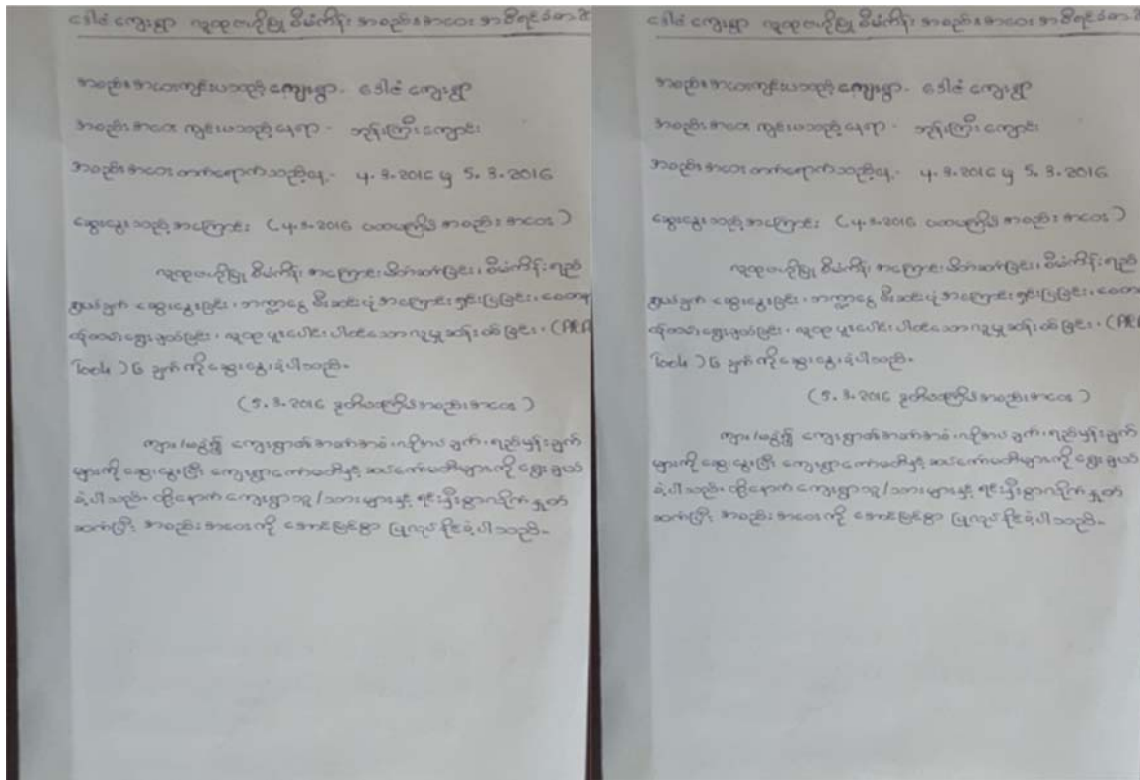 ဒေါခံ ကျေးရွာ လူထုဗဟိုပြု စီမံကိန်း အစည်းအဝေး အစီရင်ခံစာ
အစည်းအဝေးကျင်းပသည့်ကျေးရွာ - ဒေါခံ ကျေးရွာ
အစည်းအဝေး ကျင်းပသည့်နေရာ - ဘုန်းကြီးကျောင်း
အစည်းအဝေး တက်ရောက်သည့်နေ့ - 4.3.2016 မှ 5.3.2016
ဆွေးနွေးသည့်အကြောင်း (4.3.2016 ပထမအကြိမ် အစည်းအဝေး)
လူထုဗဟိုပြု စီမံကိန်း အကြောင်းမိတ်ဆက်ခြင်း၊ စီမံကိန်းရည်
ရွယ်ချက် ဆွေးနွေးခြင်း၊ ဘဏ္ဍာငွေ စီးဆင်းပုံ အကြောင်းရှင်းပြခြင်း၊ စေတနာ့
ဝန်ထမ်းရွေးချယ်ခြင်း၊ လူထု ပူးပေါင်း ပါဝင်သော လူမှုဆန်းစစ်ခြင်း၊ (PRA
Tools) 6 ချက်ကို ဆွေးနွေးခဲ့ပါသည်။
(5.3.2016 ဒုတိယအကြိမ်အစည်းအဝေး)
ကျား/မခွဲ၍ ကျေးရွာ၏အခက်အခဲ၊ လိုအပ်ချက်၊ ရည်မှန်းချက်
များကို ဆွေးနွေးပြီး ကျေးရွာကော်မတီနှင့် ဆပ်ကော်မတီများကို ရွေးချယ်
ခဲ့ပါသည်။ ထို့နောက် ကျေးရွာသူ/သားများနှင့် ရင်းနှီးစွာ နှုတ်
ဆက်ပြီး အစည်းအဝေးကို အောင်မြင်စွာ ပြုလုပ်နိုင်ခဲ့ပါသည်။
ဒေါခံ ကျေးရွာ လူထုဗဟိုပြု စီမံကိန်း အစည်းအဝေး အစီရင်ခံစာ
အစည်းအဝေးကျင်းပသည့်ကျေးရွာ - ဒေါခံ ကျေးရွာ
အစည်းအဝေး ကျင်းပသည့်နေရာ - ဘုန်းကြီးကျောင်း
အစည်းအဝေး တက်ရောက်သည့်နေ့ - 4.3.2016 မှ 5.3.2016
ဆွေးနွေးသည့်အကြောင်း (4.3.2016 ပထမအကြိမ် အစည်းအဝေး)
လူထုဗဟိုပြု စီမံကိန်း အကြောင်းမိတ်ဆက်ခြင်း၊ စီမံကိန်းရည်
ရွယ်ချက် ဆွေးနွေးခြင်း၊ ဘဏ္ဍာငွေ စီးဆင်းပုံ အကြောင်းရှင်းပြခြင်း၊ စေတနာ့
ဝန်ထမ်းရွေးချယ်ခြင်း၊ လူထု ပူးပေါင်း ပါဝင်သော လူမှုဆန်းစစ်ခြင်း၊ (PRA
Tools) 6 ချက်ကို ဆွေးနွေးခဲ့ပါသည်။
(5.3.2016 ဒုတိယအကြိမ်အစည်းအဝေး)
ကျား/မခွဲ၍ ကျေးရွာ၏အခက်အခဲ၊ လိုအပ်ချက်၊ ရည်မှန်းချက်
များကို ဆွေးနွေးပြီး ကျေးရွာကော်မတီနှင့် ဆပ်ကော်မတီများကို ရွေးချယ်
ခဲ့ပါသည်။ ထို့နောက် ကျေးရွာသူ/သားများနှင့် ရင်းနှီးစွာ နှုတ်
ဆက်ပြီး အစည်းအဝေးကို အောင်မြင်စွာ ပြုလုပ်နိုင်ခဲ့ပါသည်။